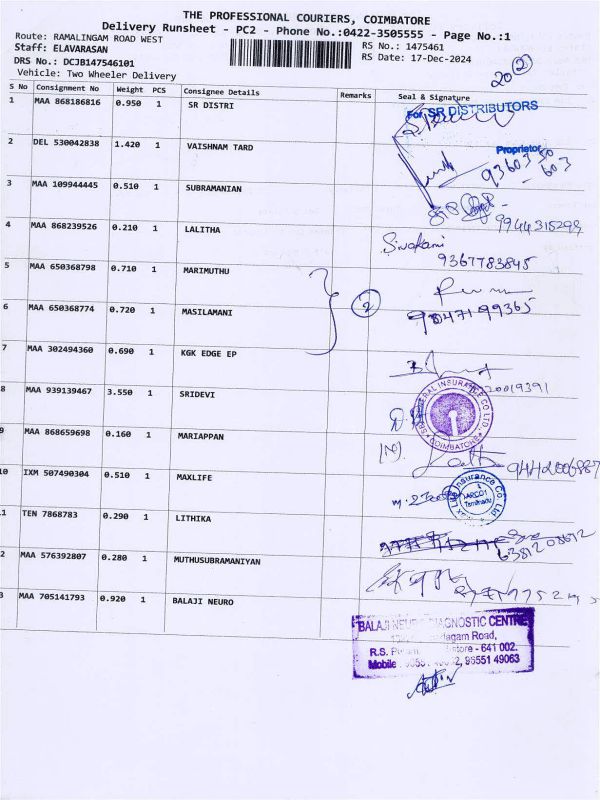 THE PROFESSIONAL COURIERS, COIMBATORE
Delivery Runsheet - PC2 - Phone No.:0422-3505555 - Page No.:1
Route: RAMALINGAM ROAD WEST
RS No.: 1475461
Staff: ELAVARASAN
RS Date: 17-Dec-2024
DRS No.: DCJB147546101
Vehicle: Two Wheeler Delivery
20 2
S No Consignment No Weight PCS Consignee Details Remarks Seal & Signature
1 MAA 868186816 0.950 1 SR DISTRI
For SR DISTRIBUTORS
Proprietor
2 DEL 530042838 1.420 1 VAISHNAM TARD
93603 50
603
3 MAA 109944445 0.510 1 SUBRAMANIAN
9944315299
4 MAA 868239526 0.210 1 LALITHA
Sivakami
9367783845
5 MAA 650368798 0.710 1 MARIMUTHU
2
6 MAA 650368774 0.720 1 MASILAMANI
9047199365
7 MAA 302494360 0.690 1 KGK EDGE EP
20019391
8 MAA 939139467 3.550 1 SRIDEVI
GENERAL INSURANCE CO LTD
COIMBATORE
9 MAA 868659698 0.160 1 MARIAPPAN
10 IXM 507490304 0.510 1 MAXLIFE
Insurance Co Ltd
Tamilnadu
11 TEN 7868783 0.290 1 LITHIKA
6381208612
12 MAA 576392807 0.280 1 MUTHUSUBRAMANIYAN
13 MAA 705141793 0.920 1 BALAJI NEURO
BALAJI NEURO DIAGNOSTIC CENTRE
Road,
R.S. - 641 002.
Mobile 96551 49063